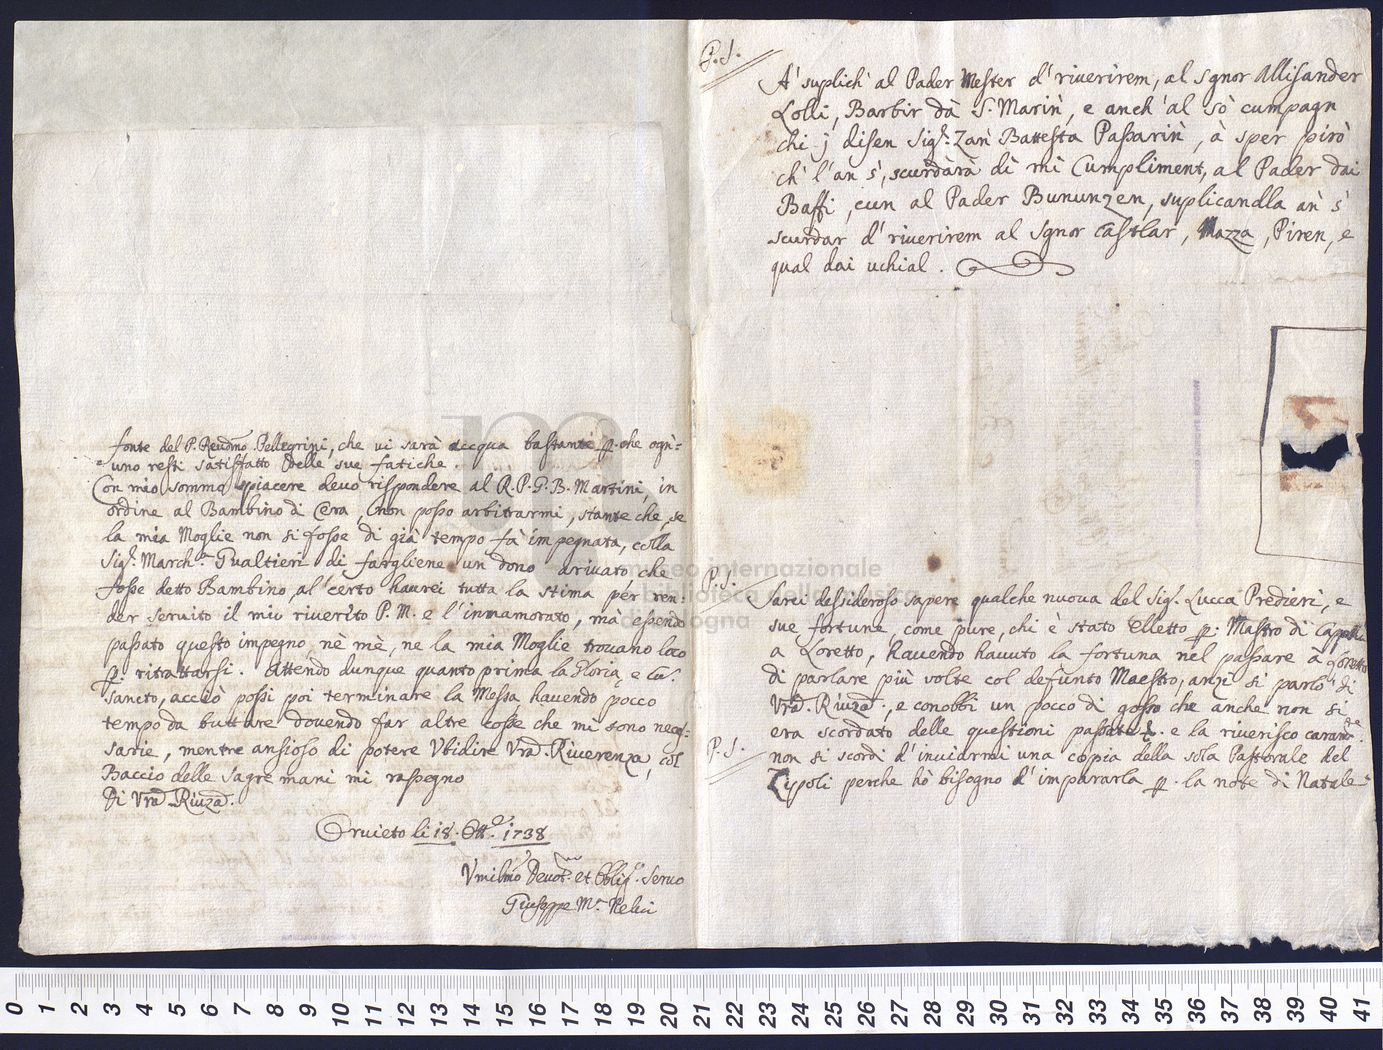 fonte del P. Reudmo Pellegrini, che vi sarà accqua bastante p. che ogni=
=uno resti satisfatto delle sue fatiche.
Con mio sommo spiacere devo rispondere al R. P. G. B. Martini, in
ordine al Bambino di Cera, non posso arbitrarmi, stante che, se
la mia Moglie non si fosse di già tempo fà impegnata, colla
Sig.ra March.a Gualtieri di fargliene un dono arivato, che
fosse detto Bambino, al certo haurei tutta la stima per ren=
der seruito il mio riuerito P. M. e l'innamorato, mà essendo
passato questo impegno, nè mè, ne la mia Moglie trouano loco
p. ritrattarsi. Attendo dunque quanto prima la Gloria, e
Sancto, acciò possi poi terminare la Messa hauendo pocco
tempo da buttare douendo far altre cosse che mi sono neces=
sarie, mentre ansioso di potere Vbidire Vra. Riuerenza, col
Baccio delle sagre mani mi rassegno
Di Vra. Riuza.
Oruieto li 18. Ott.e 1738
Vmilmo Deuot.mo et Oblig.o Seruo
Giuseppe M.a Nelui
P. S.
A' suplich' al Pader Mester d' riuerirem, al Sgnor Allisander
Lolli, Barbir dà S. Marin, e anch' al sò cumpagn
chi j disen Sig.r Zan Battesta Passarin, à sper però
ch' l'an s', scurdàrà dì mì Cumpliment, al Pader dai
Baffi, cun al Pader Bununzen, suplicandla an' s'
scurdar d' riuerirem al Sgnor Castlar, Mazza, Piren, e
qual dai uchial.
P. S.
Sarei dessideroso sapere qualche nuoua del Sig. Lucca Predieri, e
sue fortune, come pure, chi è stato elletto p. Mastro di Cappella
a Loretto, hauendo hauuto la fortuna nel passare à Loretto
di parlare più volte col defunto Maestro, anzi si parlò di
Vra. Riuza., e conobbi un pocco di gosso che anche non si
era scordato delle questioni passate. e la riuerisco caram.te
P. S.
non si scordi d'inuiarmi una coppia della sola Pastorale del
Zipoli perche hò bisogno d'impararla p. la note di Natale
museo internazionale
e biblioteca della musica
di bologna
0 1 2 3 4 5 6 7 8 9 10 11 12 13 14 15 16 17 18 19 20 21 22 23 24 25 26 27 28 29 30 31 32 33 34 35 36 37 38 39 40 41